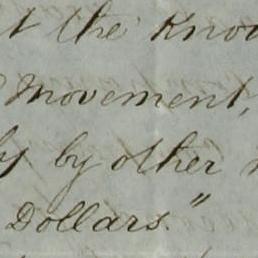 t the Know
Movement,
by by other
Dollars."